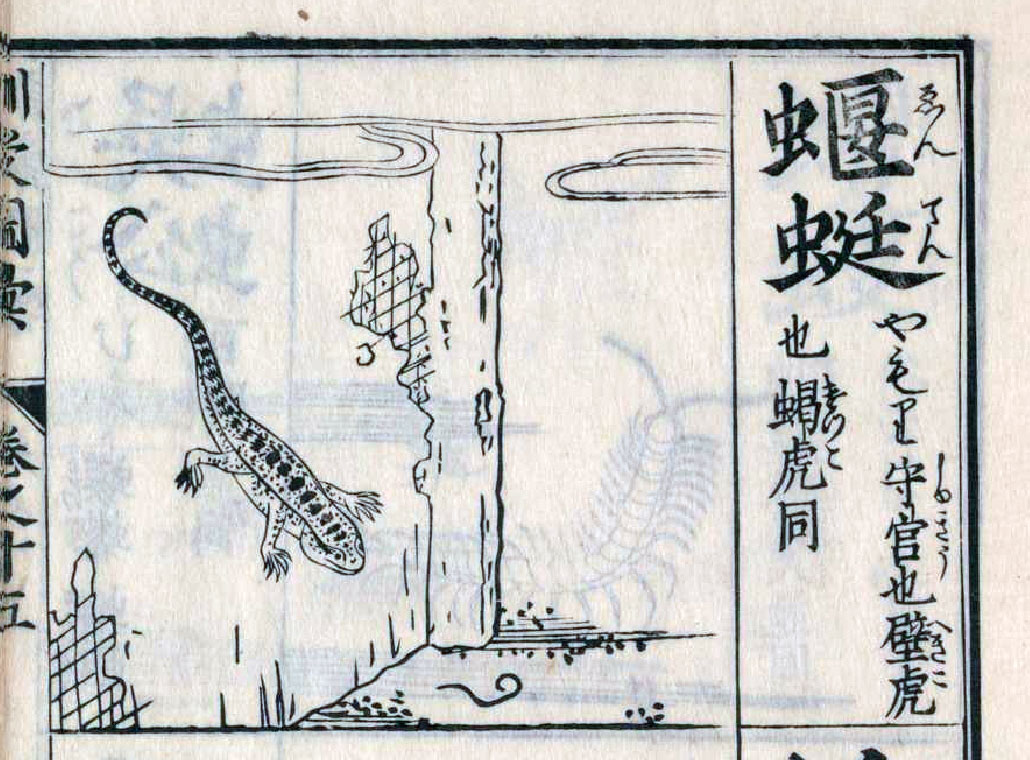 ゑんてん
蝘蜓
しゆきう
へきこ
やもり守宮也壁虎
かつこ
也蝎虎同
訓蒙圖彙 巻之十五